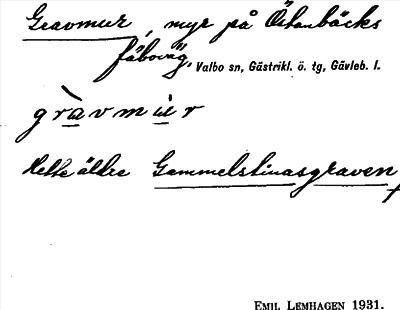 Gravmur, myr på Östanbäcks
fäboväg, Valbo sn, Gästrikl. ö. tg, Gävleb. l.
gràvmur
Hette äldre Gammelstinasgraven
EMIL LEMHAGEN 1931.